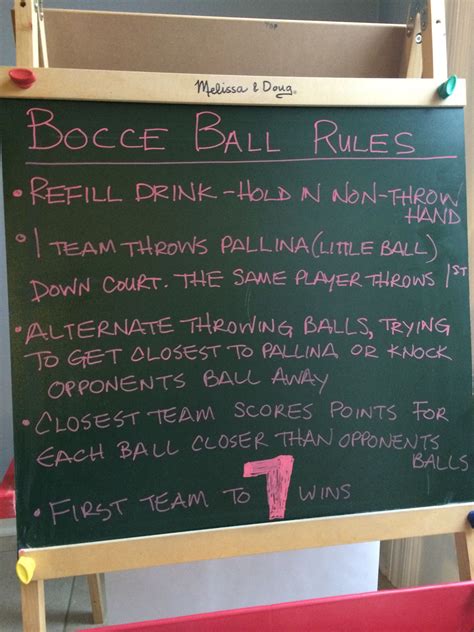 Melissa & Doug
BOCCE BALL RULES
• REFILL DRINK - HOLD IN NON-THROW
HAND
• 1 TEAM THROWS PALLINA (LITTLE BALL)
DOWN COURT. THE SAME PLAYER THROWS 1ST
• ALTERNATE THROWING BALLS, TRYING
TO GET CLOSEST TO PALLINA OR KNOCK
OPPONENTS BALL AWAY
• CLOSEST TEAM SCORES POINTS FOR
EACH BALL CLOSER THAN OPPONENTS
BALLS
• FIRST TEAM TO 7 WINS